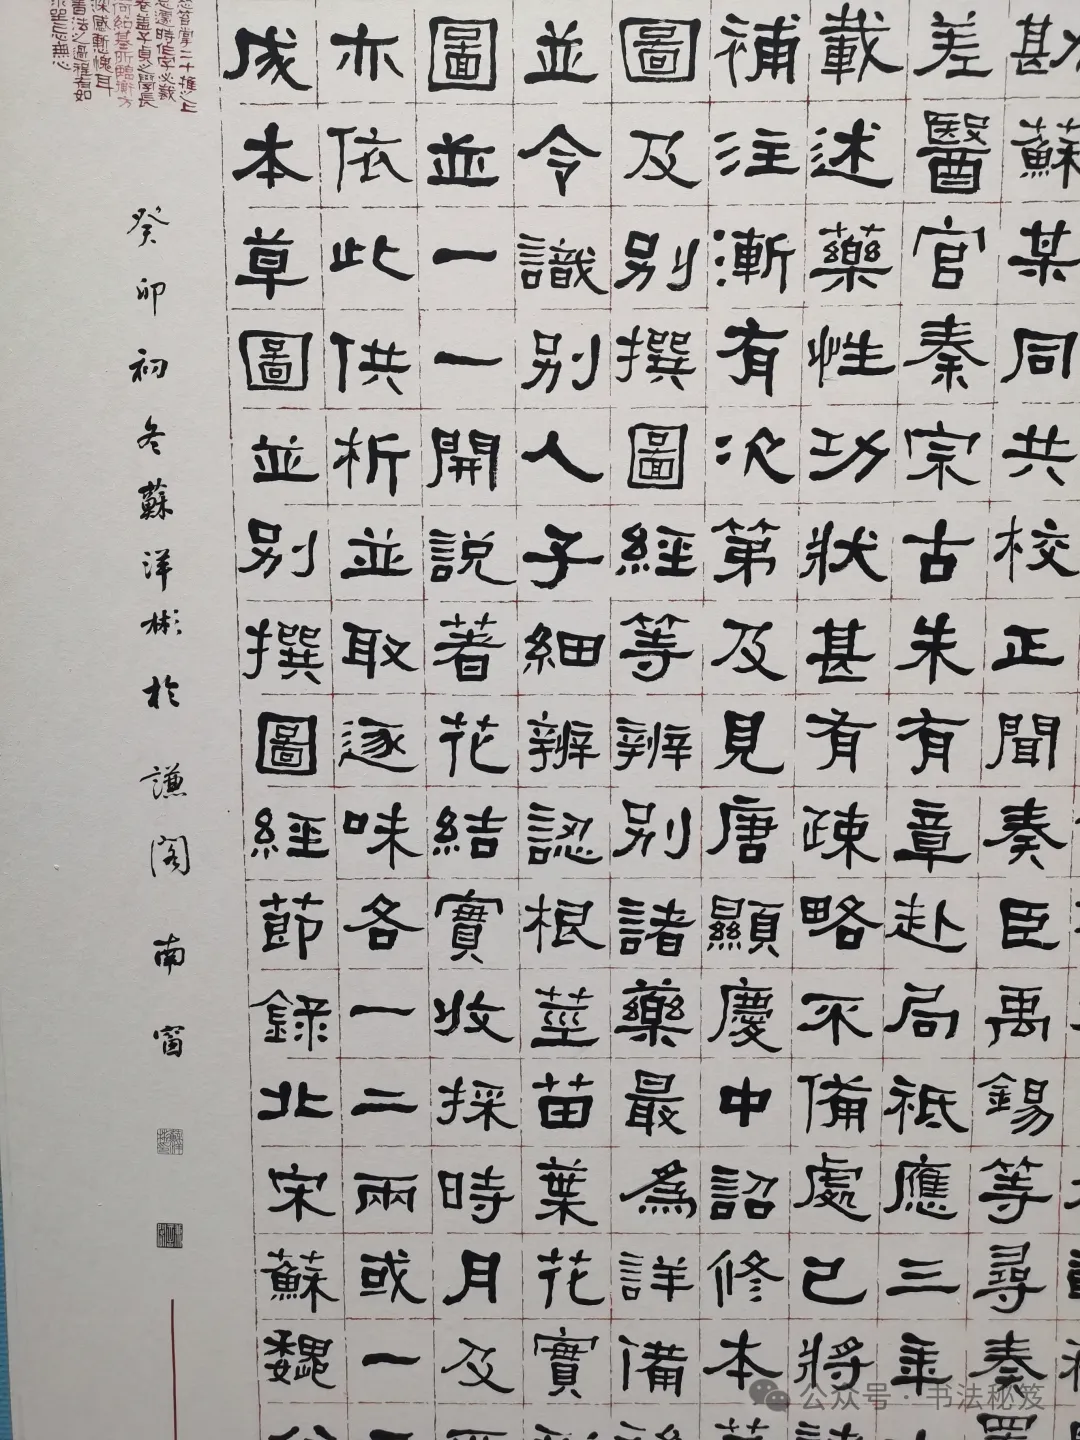 勘蘇某同共校正聞奏臣禹錫等尋奏置
差醫官秦宗古朱有章赴局祗應三年
載述藥性功狀甚有疎略不備處已將諸
補注漸有次第及見唐顯慶中詔修本草
圖及別撰圖經等辨別諸藥最為詳備
並令識別人子細辨認根莖苗葉花實形
圖並一一開説著花結實收採時月及所
亦依此供析並取逐味各一二兩或一
成本草圖並別撰圖經節錄北宋蘇魏公
時作字必裁
何紹基所臨衡方
深感慚愧耳
書法之過程有如
癸卯初冬蘇洋彬於謙閣南窗
公众号·书法秘笈